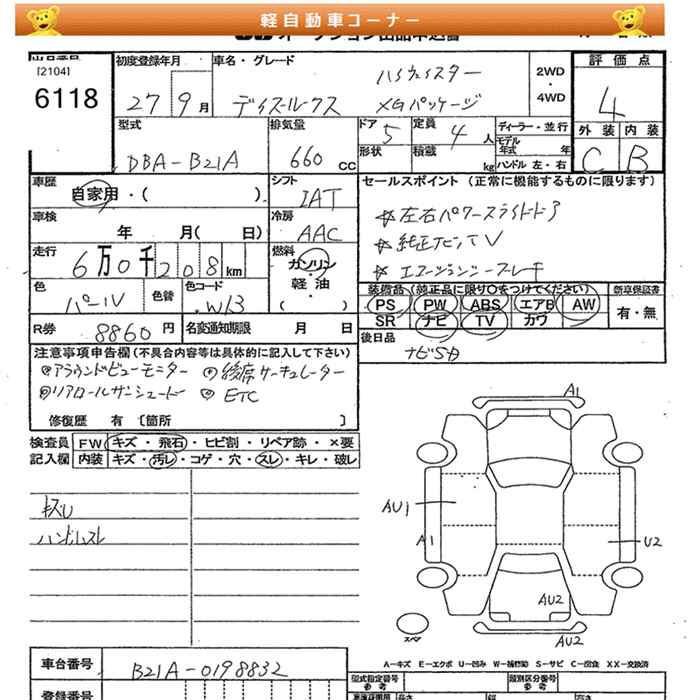 軽自動車コーナー
[2104]
6118
初度登録年月
27 9月
車名・グレード
ハイウェイスター
デイズルークス XGパッケージ
2WD
・
4WD
評価点
4
外装 内装
C B
型式
DBA-B21A
排気量
660 CC
ドア 5
形状
定員 4 人
積載 kg
ディーラー・並行
モデル年式 年
ハンドル 左・右
車歴
自家用・( )
シフト
IAT
セールスポイント (正常に機能するものに限ります)
☆左右パワースライドドア
☆純正ナビTV
☆エマージェンシーブレーキ
車検
年 月( 日)
冷房
AAC
走行
6万0千208km
燃料
ガソリン
・
軽・油
( )
色
パール
色替
色コード
W13
装備品(純正品に限り○をつけてください)
新車保証書
PS PW ABS エアB AW
SR ナビ TV カワ
有・無
R券 8860円
名変通知期限 月 日
後日品
ナビSD
注意事項申告欄(不具合内容等は具体的に記入して下さい)
◎アラウンドビューモニター ◎後席サーキュレーター
◎リアロールサンシェード ◎ETC
修復歴 有 〔箇所 〕
検査員
記入欄
FW キズ・飛石・ヒビ割・リペア跡・×要
内装 キズ・汚レ・コゲ・穴・スレ・キレ・破レ
キズU
ハンドルスレ
A1
AU1
A1
U2
AU2
AU2
スペア
A-キズ E-エクボ U-凹み W-補修跡 S-サビ C-腐食 XX-交換済
車台番号
B21A-0198832
型式指定番号
参考
類別区分番号
参考
登録番号